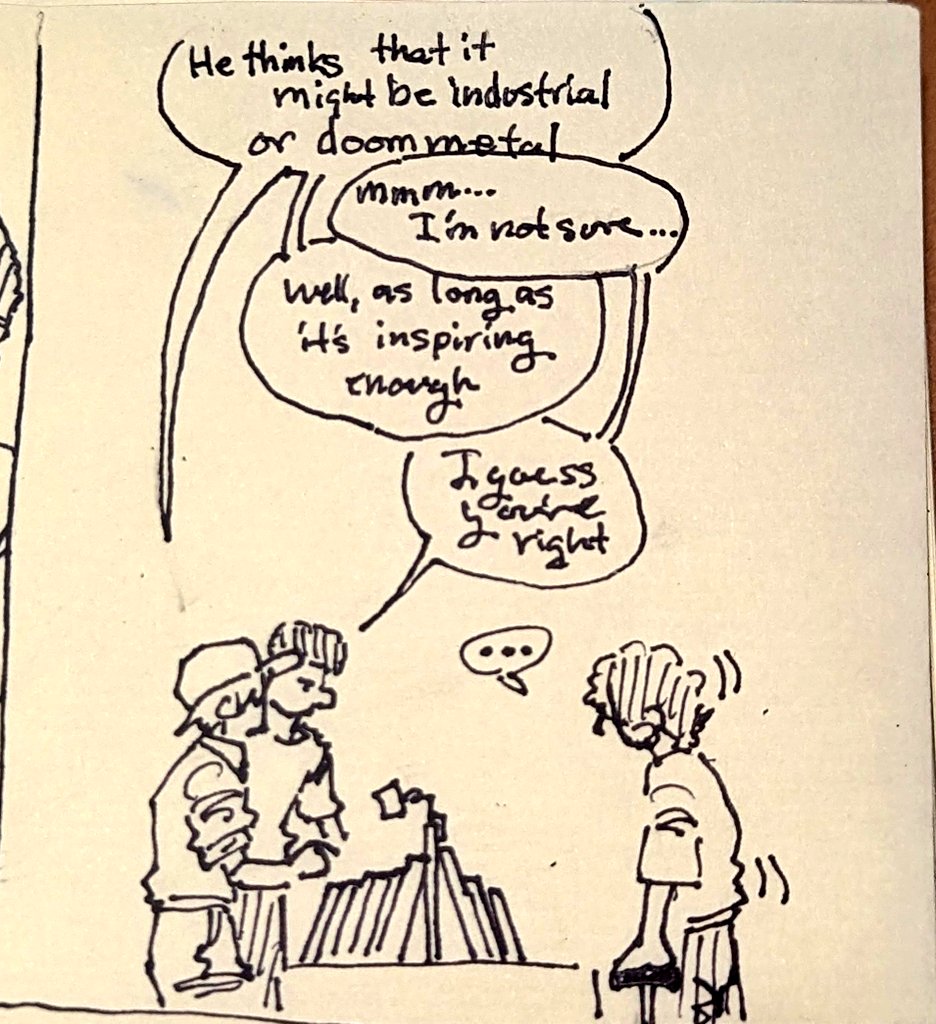 He thinks that it
might be industrial
or doom metal
mmm...
I'm not sure...
Well, as long as
it's inspiring
enough
I guess
you're
right
...